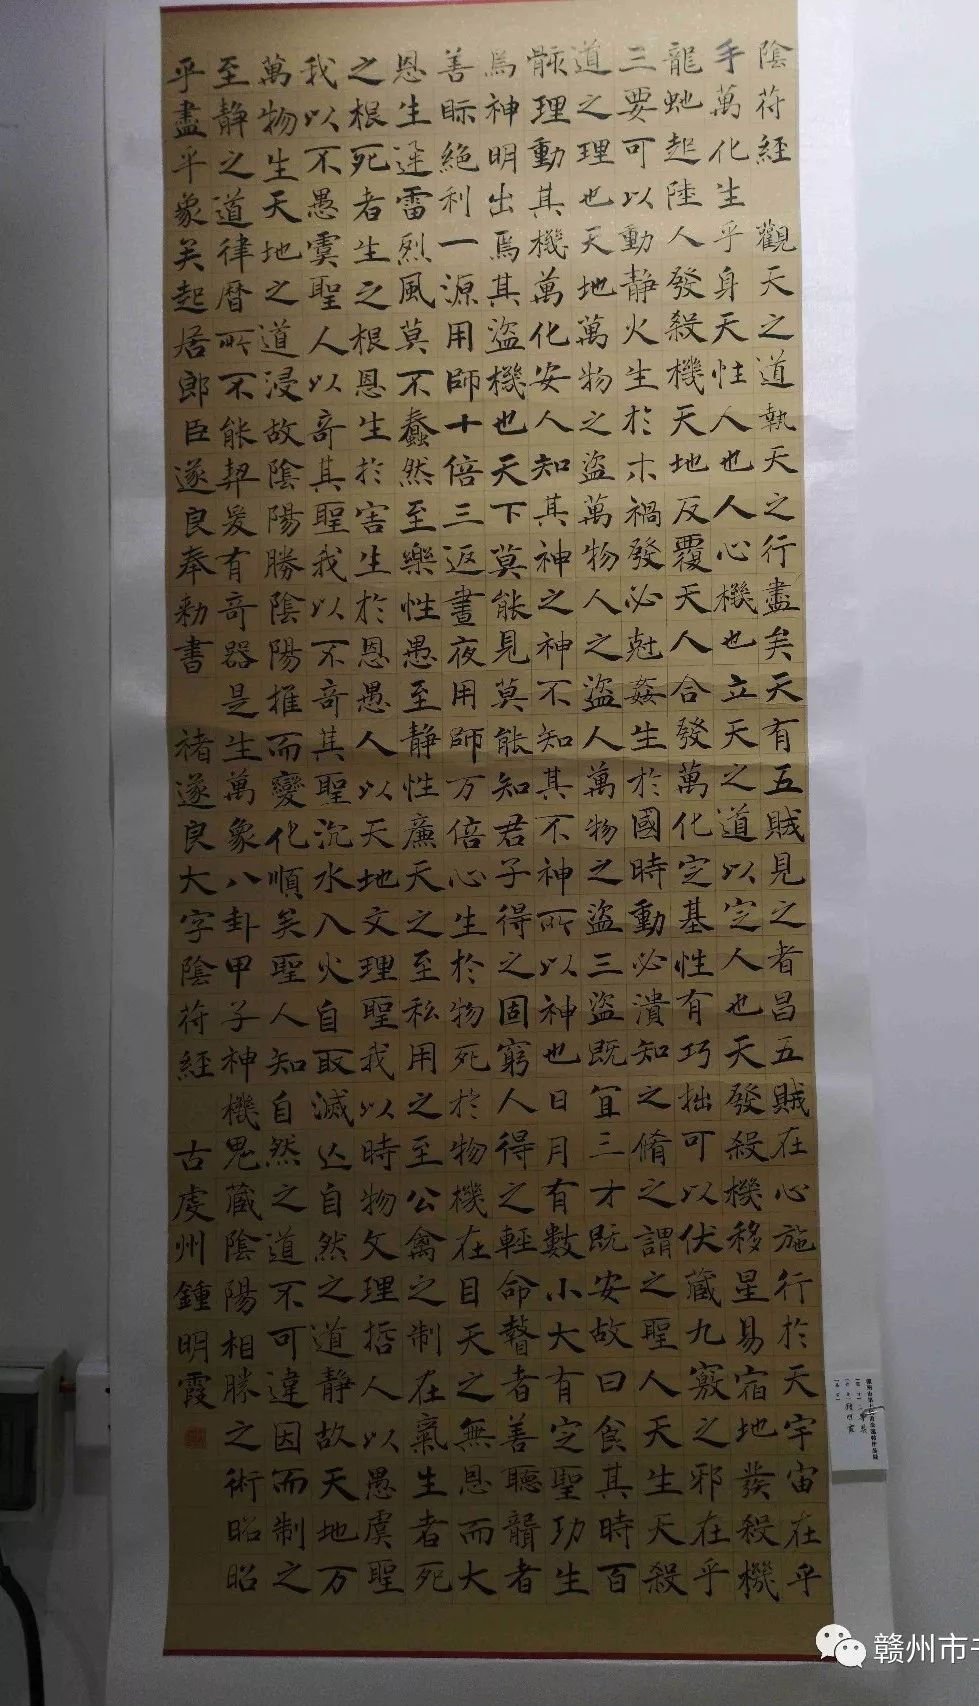 陰符經　觀天之道執天之行盡矣天有五賊見之者昌五賊在心施行於天宇宙在乎
手萬化生乎身天性人也人心機也立天之道以定人也天發殺機移星易宿地發殺機
龍虵起陸人發殺機天地反覆天人合發萬化定基性有巧拙可以伏藏九竅之邪在乎
三要可以動靜火生於木禍發必尅姦生於國時動必潰知之脩之謂之聖人天生天殺
道之理也天地萬物之盜萬物人之盜人萬物之盜三盜既宜三才既安故曰食其時百
骸理動其機萬化安人知其神之神不知其不神所以神也日月有數小大有定聖功生
焉神明出焉其盜機也天下莫能見莫能知君子得之固窮人得之輕命瞽者善聽聾者
善眎絕利一源用師十倍三返晝夜用師万倍心生於物死於物機在目天之無恩而大
恩生迅雷烈風莫不蠢然至樂性愚至靜性廉天之至私用之至公禽之制在氣生者死
之根死者生之根恩生於害生於恩愚人以天地文理聖我以時物文理哲人以愚虞聖
我以不愚虞聖人以奇其聖我以不奇其聖沉水入火自取滅亡自然之道靜故天地万
萬物生天地之道浸故陰陽勝陰陽推而變化順矣聖人知自然之道不可違因而制之
至靜之道律曆所不能契爰有奇器是生萬象八卦甲子神機鬼藏陰陽相勝之術昭昭
乎盡乎象矣起居郎臣遂良奉勅書　褚遂良大字陰符經　古虔州鍾明霞
赣州市书